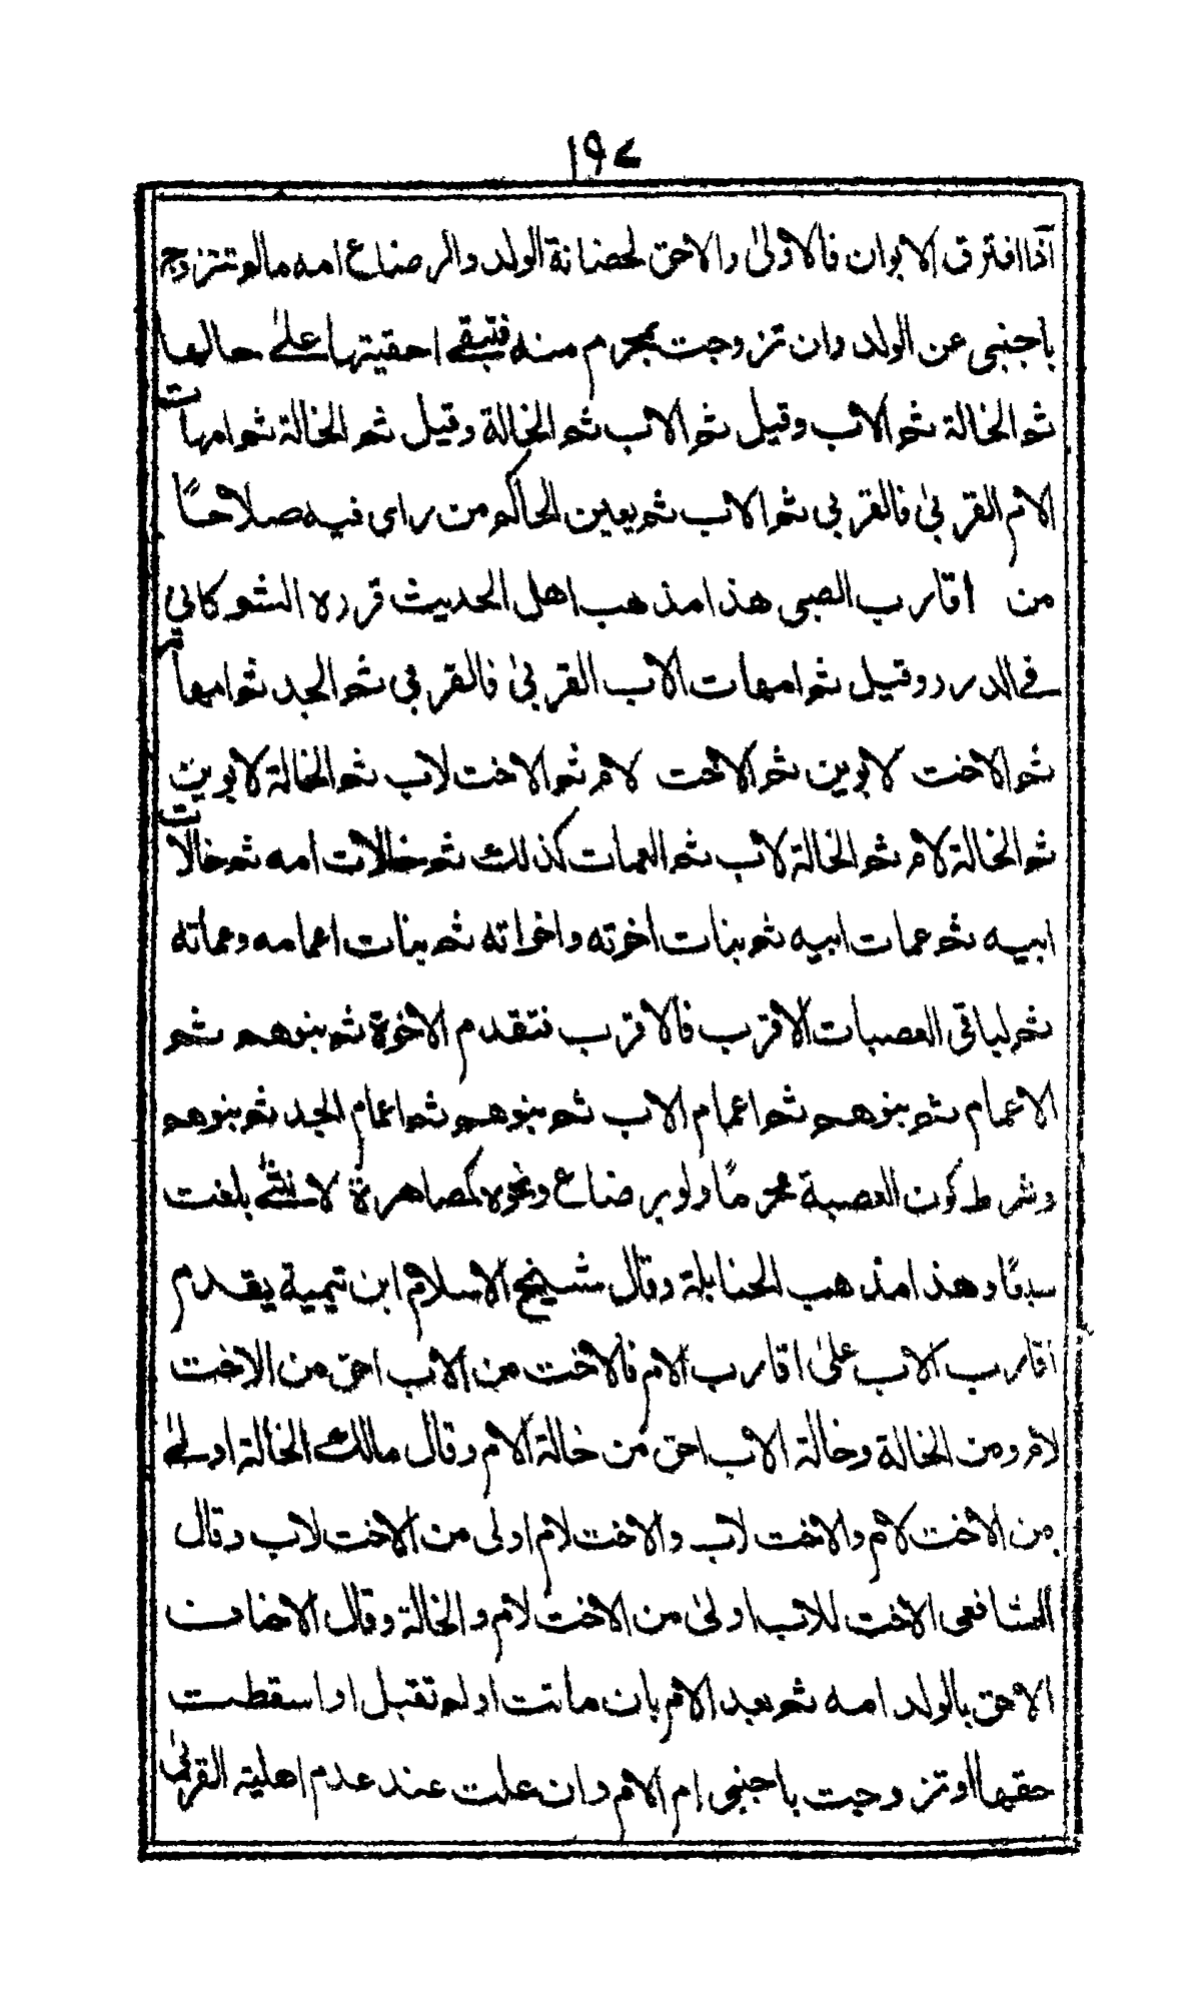 ١٩٧
اذا افترق الابوان فالاولىٰ والاحق لحضانة الولد والرضاع امه مالم تتزوج
باجنبى عن الولد وان تزوجت بمحرم منه فتبقے احقيتها علےٰ حالها
ثم الخالة ثم الاب وقيل ثم الاب ثم الخالة وقيل ثم الخالة ثم امهات
الام القربىٰ فالقربى ثم الاب ثم يعين الحاكم من راى فيه صلاحًا
من اقارب الصبى هذا مذهب اهل الحديث قرره الشوكانى
فے الدرر وقيل ثم امهات الاب القربىٰ فالقربى ثم الجد ثم امهاته
ثم الاخت لابوين ثم الاخت لام ثم الاخت لاب ثم الخالة لابوين
ثم الخالة لام ثم الخالة لاب ثم العمات كذلك ثم خالات امه ثم خالات
ابيه ثم عمات ابيه ثم بنات اخوته واخواته ثم بنات اعمامه وعماته
ثم لباقى العصبات الاقرب فالاقرب فتقدم الاخوة ثم بنوهم ثم
الاعمام ثم بنوهم ثم اعمام الاب ثم بنوهم ثم اعمام الجد ثم بنوهم
وشرط كون العصبة محرمًا ولو برضاع ونحوه كمصاهرة لانثےٰ بلغت
سبعًا وهذا مذهب الحنابلة وقال شيخ الاسلام ابن تيمية يقدم
اقارب الاب علىٰ اقارب الام فالاخت من الاب احق من الاخت
لام ومن الخالة وخالة الاب احق من خالة الام وقال مالك الخالة اولےٰ
من الاخت لام والاخت لاب والاخت لام اولى من الاخت لاب وقال
الشافعى الاخت للاب اولىٰ من الاخت لام والخالة وقال الاحناف
الاحق بالولد امه ثم بعد الام بان ماتت او لم تقبل او اسقطت
حقها او تزوجت باجنبى ام الام وان علت عند عدم اهلية القربىٰ